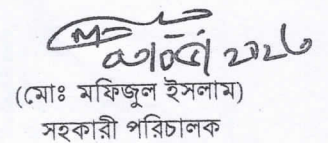 (মোঃ মফিজুল ইসলাম)
সহকারী পরিচালক